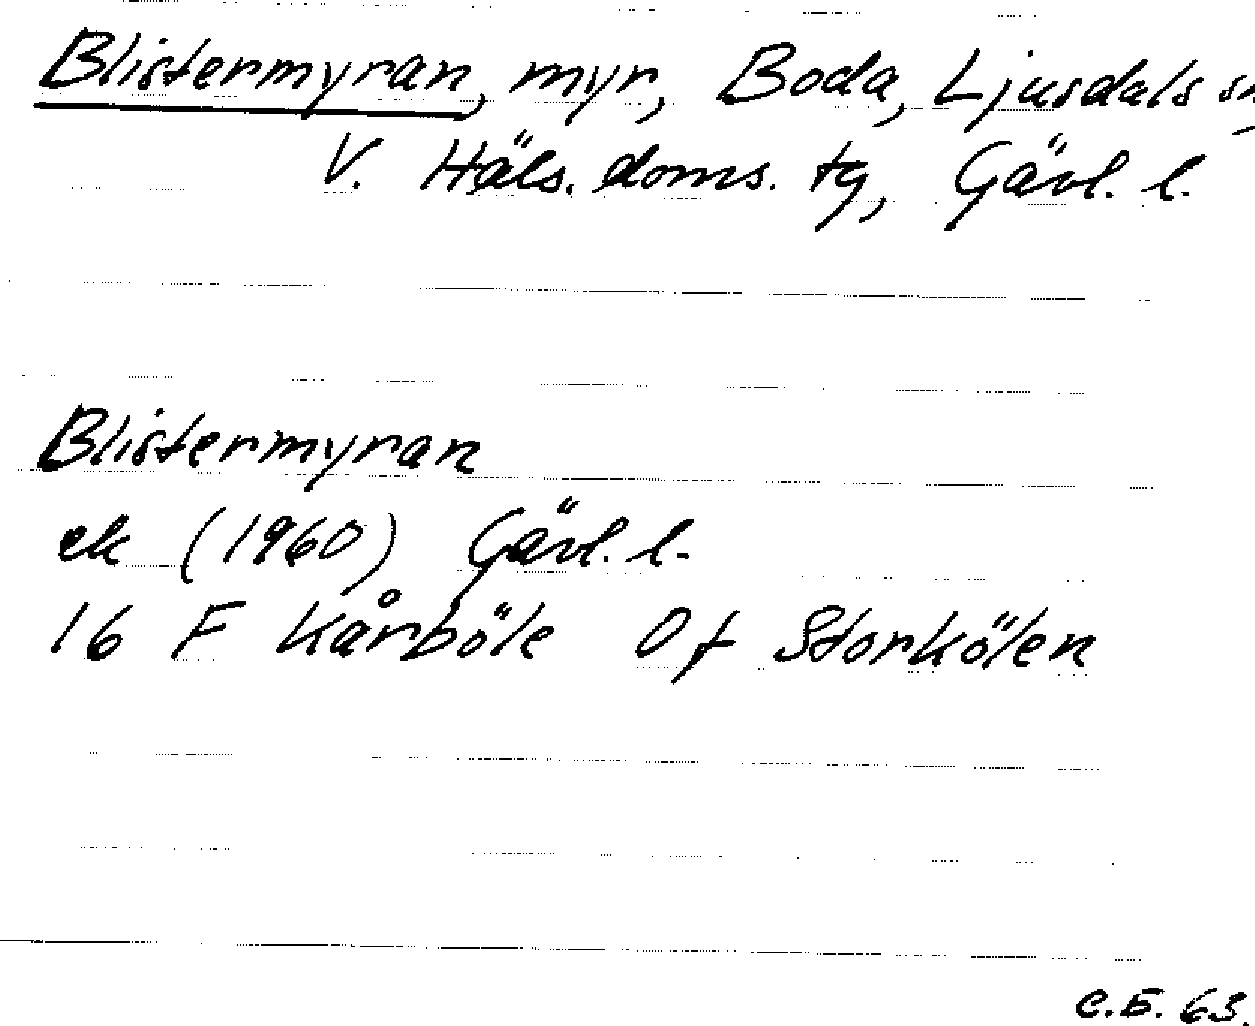 Blistermyran, myr, Boda, Ljusdals sn,
V. Häls. doms. tg, Gävl. l.
Blistermyran
ek (1960) Gävl. l.
16 F Kårböle 0f Storkölen
C.E. 63.